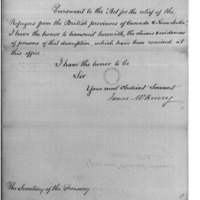 Pursuant to the Act for the relief of the
Refugees from the British provinces of Canada & Nova Scotia
I have the honor to transmit herewith, the claims & evidences
of persons of that description, which have been received at
this office
I have the honor to be
Sir
Your most obedient Servant
James McHenry
The Secretary of the Treasury